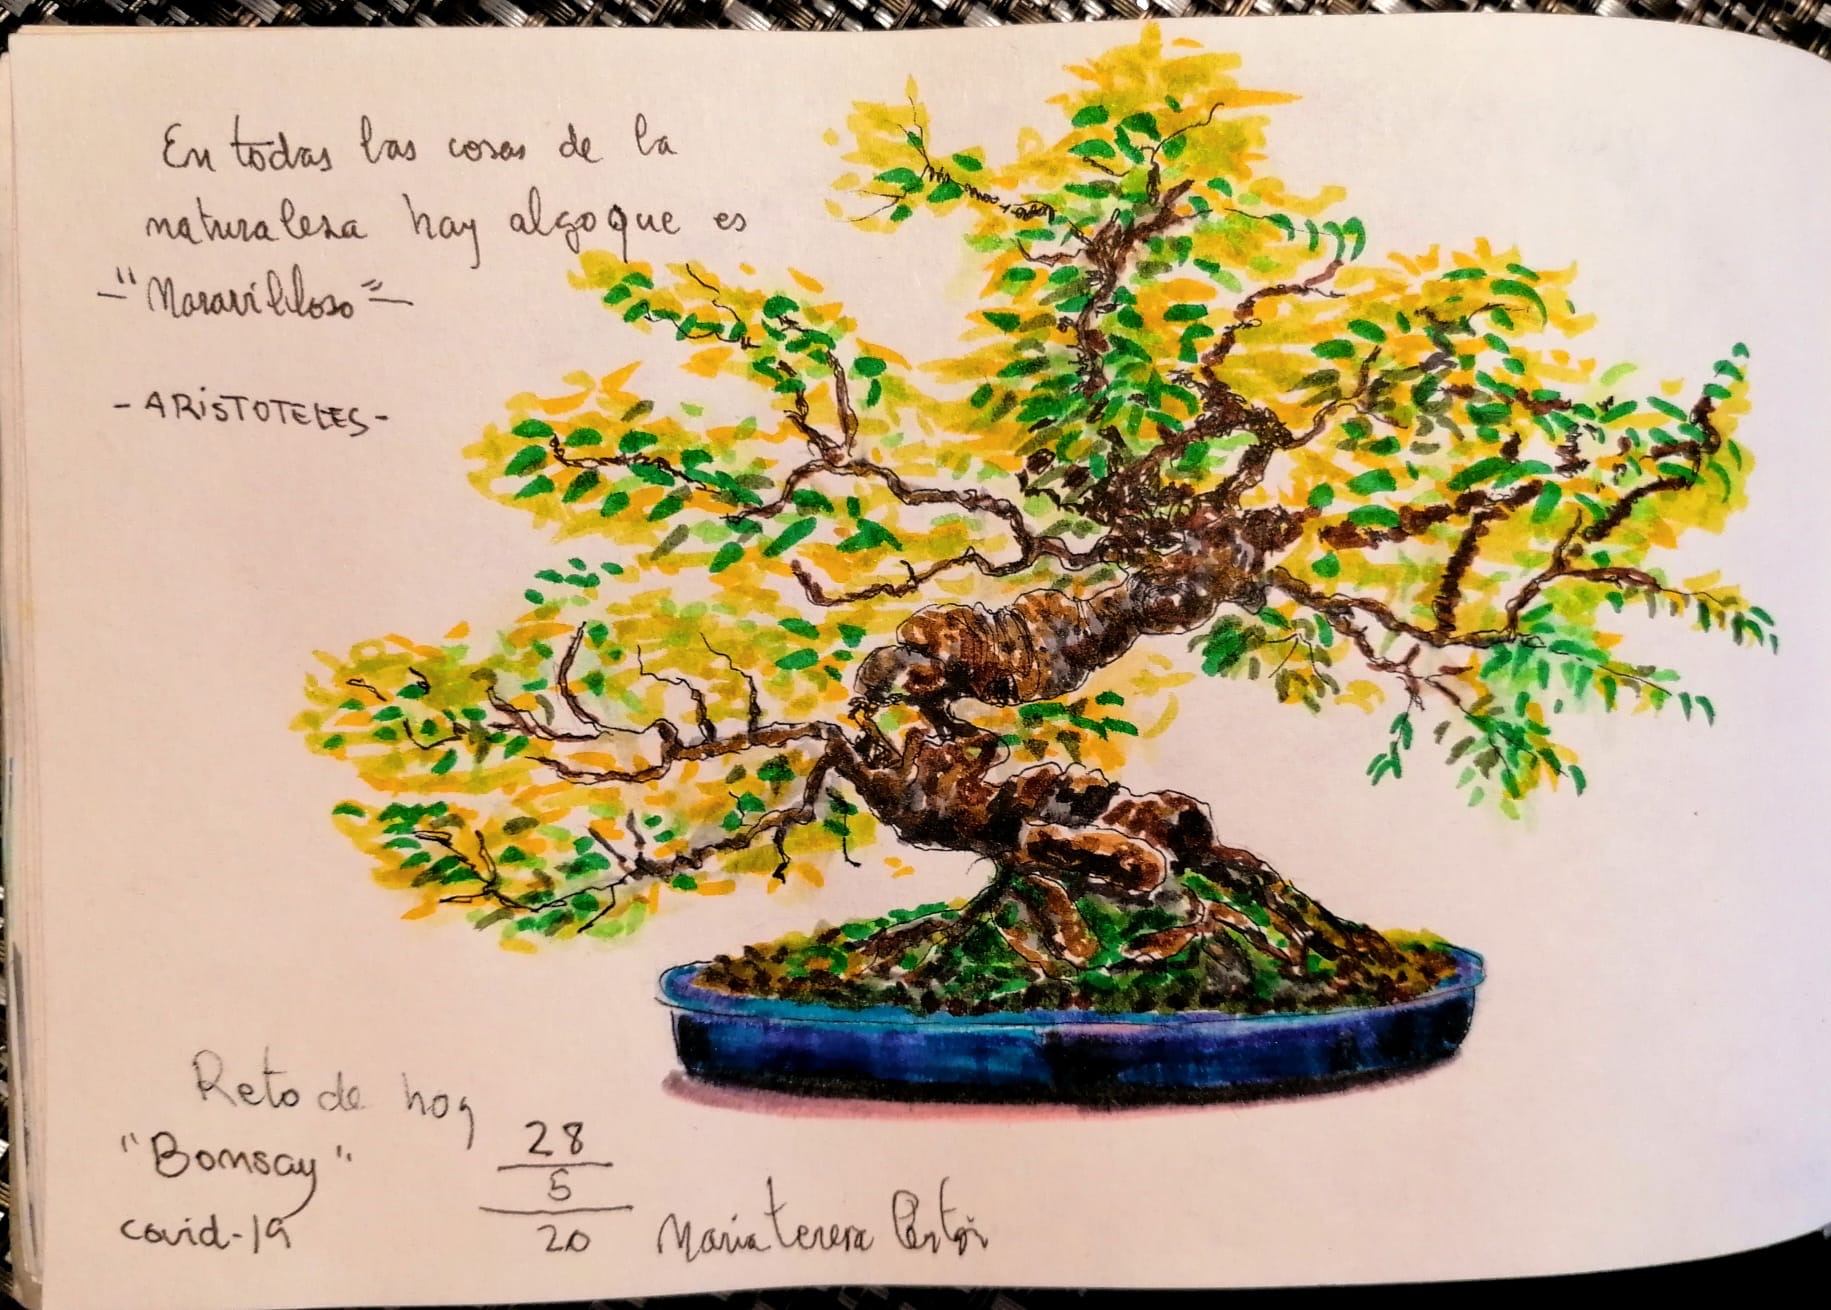 En todas las cosas de la
naturaleza hay algo que es
-"Maravilloso"-
-ARISTOTELES-
Reto de hoy
"Bonsay"
covid-19
28
5
20
Maria teresa